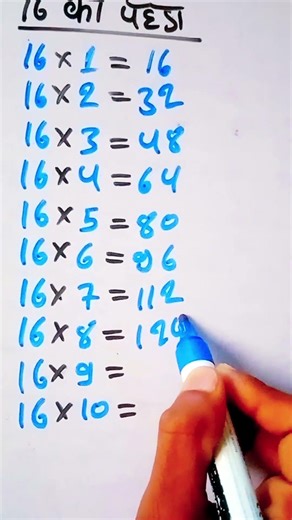 16 का पहाड़ा
16 × 1 = 16
16 × 2 = 32
16 × 3 = 48
16 × 4 = 64
16 × 5 = 80
16 × 6 = 96
16 × 7 = 112
16 × 8 = 12
16 × 9 =
16 × 10 =